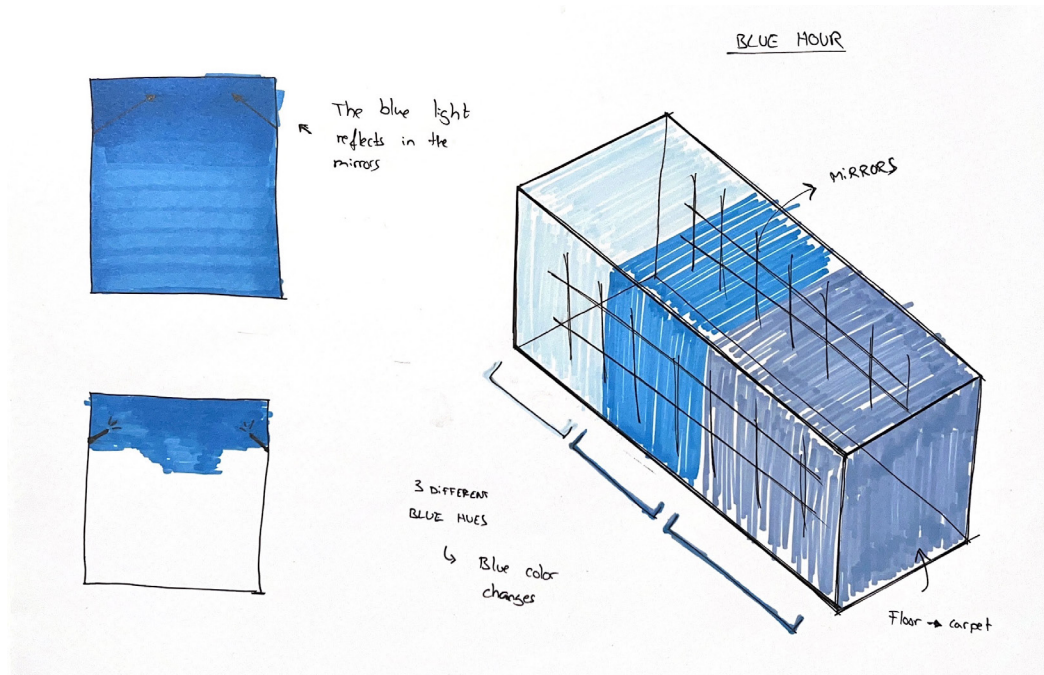 BLUE HOUR
The blue light
reflects in the
mirrors
MiRRORS
3 DiFFERENT
BLUE HUES
↳ Blue color
changes
Floor → carpet